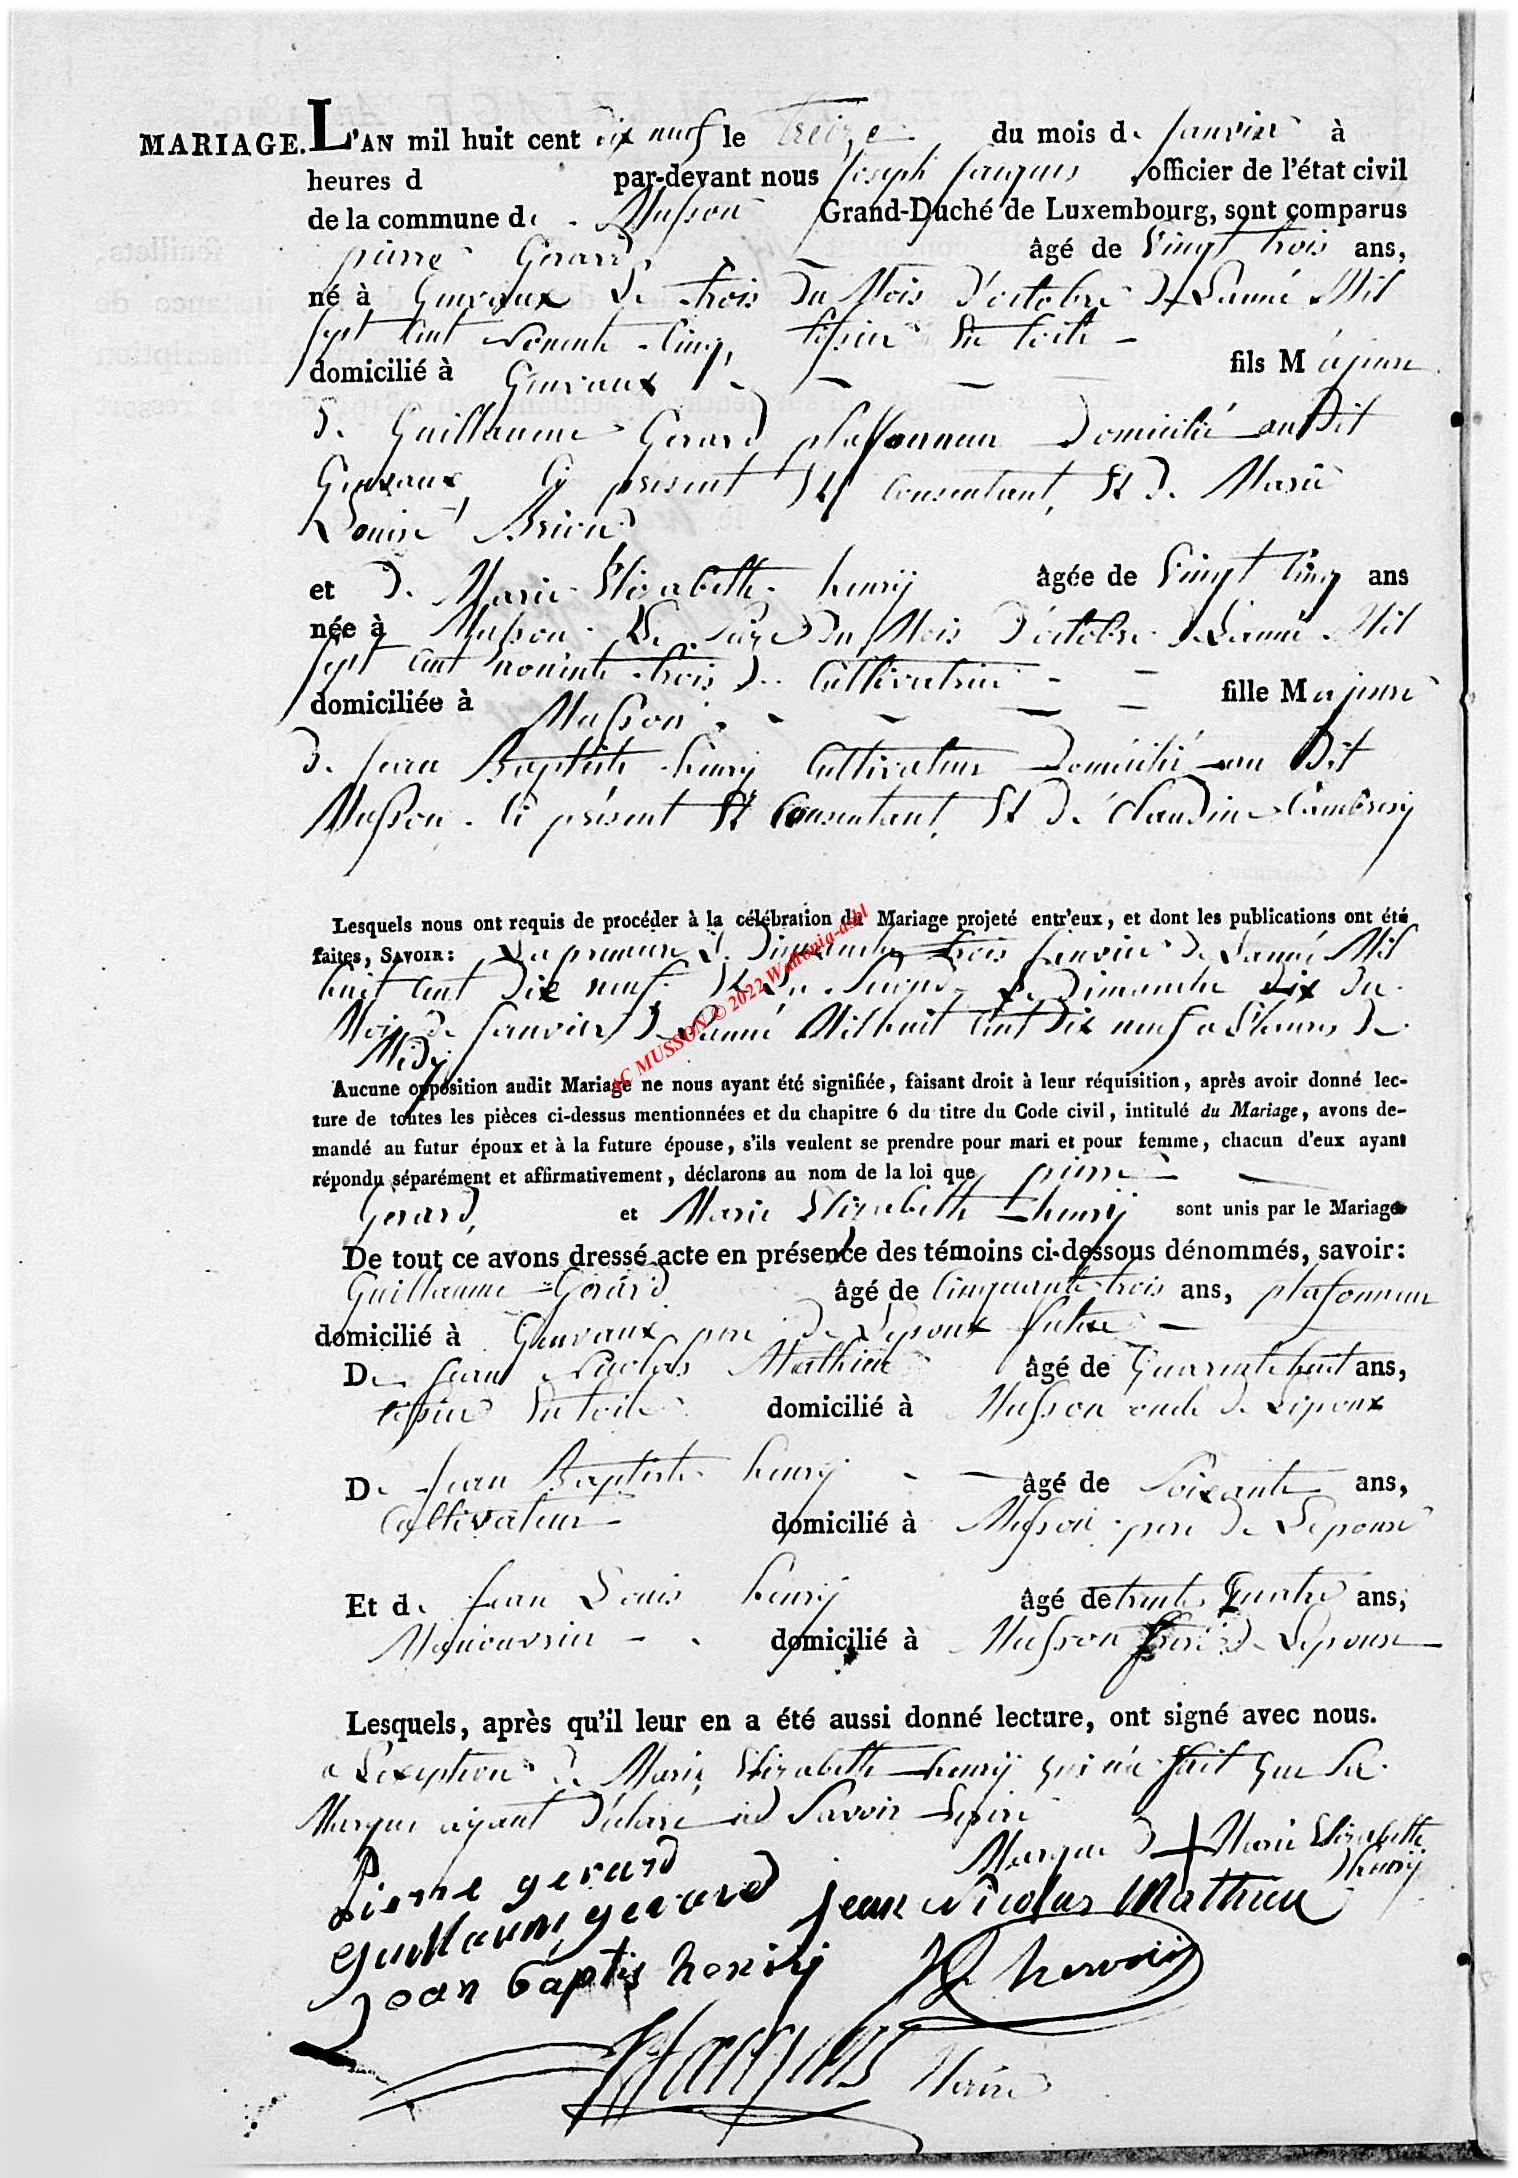 MARIAGE. L'AN mil huit cent dix neuf le Treize du mois de Janvier à
heures d par-devant nous Joseph Jaques, officier de l'état civil
de la commune de Musson Grand-Duché de Luxembourg, sont comparus
pierre Gerard âgé de Vingt trois ans,
né à Gorvaux le trois du Mois d'octobre de L'année Mil
sept cent nonente-Cinq, tissier en toile
domicilié à fils Majeure
de Guillaume Gerard plaffonneur Domicilié audit
ci present et consentant, Et de Marie
Louise Brion
et de Marie Elizabethe henrÿ âgée de Vingt Cinq ans
née à Musson Le du Mois d'octobre de L'année Mil
sept cent nonente-trois Cultivatrice
domiciliée à Musson fille Majeure
de Jean Baptiste henrÿ Cultivateur Domicilié au Dit
Musson ci présent Et Consentant, Et de Claudine Lambrerÿ
Lesquels nous ont requis de procéder à la célébration du Mariage projeté entr'eux, et dont les publications ont été
faites, SAVOIR: La premiere le Dimanche trois Janvier de L'année Mil
huit cent Dix neuf Et La Seconde Le Dimanche dix du
Mois de Janvier de L'année Mil huit Cent Dix neuf a L'heure de
Midÿ
Aucune opposition audit Mariage ne nous ayant été signifiée, faisant droit à leur réquisition, après avoir donné lec-
ture de toutes les pièces ci-dessus mentionnées et du chapitre 6 du titre du Code civil, intitulé du Mariage, avons de-
mandé au futur époux et à la future épouse, s'ils veulent se prendre pour mari et pour femme, chacun d'eux ayant
répondu séparément et affirmativement, déclarons au nom de la loi que pierre
Gerard, et Marie Elizabethe henrÿ sont unis par le Mariage
De tout ce avons dressé acte en présence des témoins ci-dessous dénommés, savoir:
Guillaume Gerard âgé de Cinquante-trois ans, plafonneur
domicilié à pere de L'epoux futur
De Jean Nicolas Mathieu âgé de Quarente huit ans,
tissier en toile domicilié à Musson oncle de L'epoux
De Jean Baptiste henrÿ âgé de Soixante ans,
Cultivateur domicilié à Musson pere de L'epouse
Et de Jean Louis henrÿ âgé de trente Quatre ans,
Manouvrier domicilié à Musson frere de L'epouse
Lesquels, après qu'il leur en a été aussi donné lecture, ont signé avec nous.
a L'exeption de Marie Elizabethe henrÿ qui n'a fait que Sa
Marque ayant declaré ne Savoir Ecrire
Marque de + Marie Elizabethe
henrÿ
Pierre gerard
guillaume gerard jean Nicolas Mathieu
Jean baptis henrÿ
Jaques Maire
AC MUSSON © 2022 Wallonia-asbl